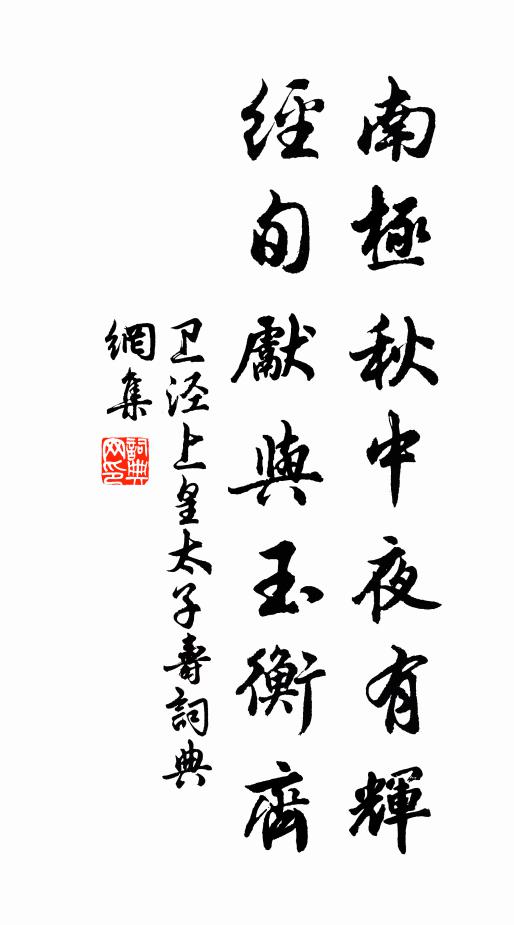 南極秋中夜有輝
經旬獻與玉衡齊
卫泾上皇太子壽詞典
網集
詞典
网印